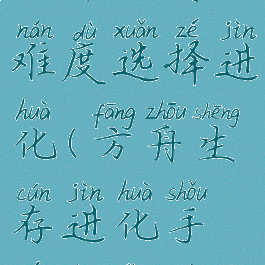 nán dù xuǎn zé jìn
难度选择进
huà fāng zhōu shēng
化(方舟生
cún jìn huà shǒu
存进化手